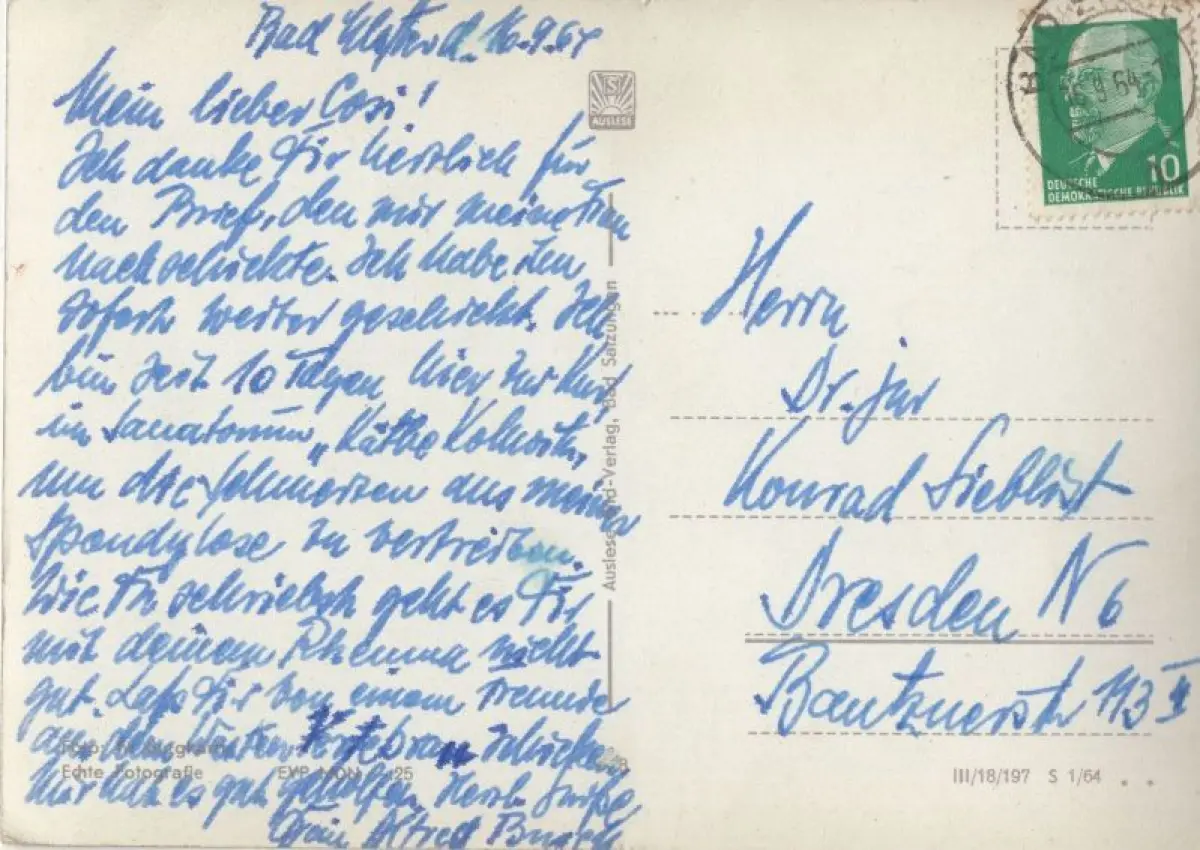 Bad Elster d. 16.9.64
Mein lieber Cosi!
Ich danke Dir herzlich für
den Brief, den mir meine Frau
nachschickte. Ich habe ihn
sofort weiter geschickt. Ich
bin seit 10 Tagen hier zur Kur
im Sanatorium „Käthe Kollwitz,
um die Schmerzen aus meiner
Spondylose zu vertreiben.
Wie Du schriebst geht es Dir
mit deinem Rheuma nicht
gut. Lass Dir von einem Freunde
aus dem Westen schicken,
Mir hat es gut geholfen. Herzl. Grüße
Dein Alfred
S
AUSLESE
Auslese-Bild-Verlag, Bad Salzungen
Foto:
Echte Fotografie
25
16.9.64
10
DEUTSCHE
DEMOKRATISCHE REPUBLIK
Herrn
Dr. jur
Konrad
Dresden N 6
Bautznerstr 113 II
III/18/197 S 1/64